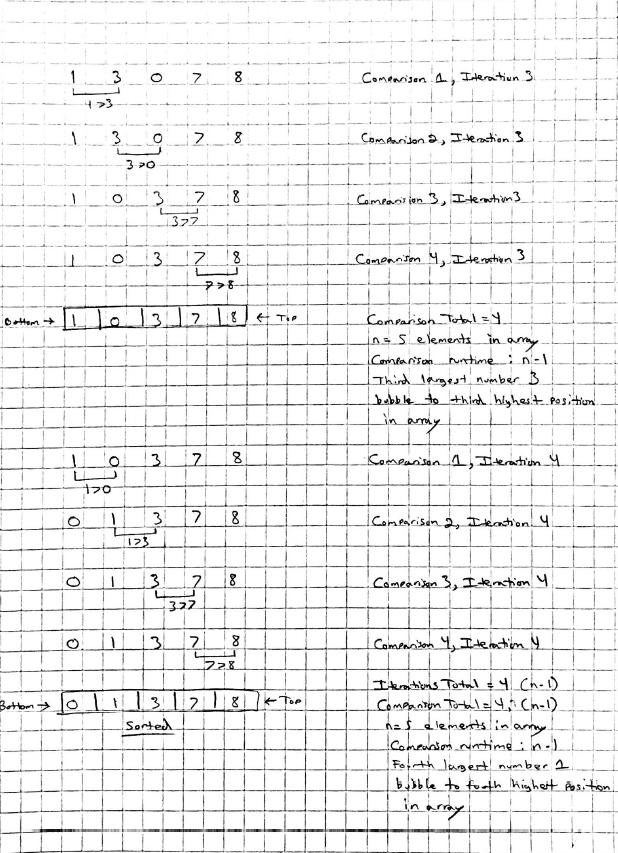 1 3 0 7 8 Comparison 1, Iteration 3
1>3
1 3 0 7 8 Comparison 2, Iteration 3
3>0
1 0 3 7 8 Comparision 3, Iteration 3
3>7
1 0 3 7 8 Comparison 4, Iteration 3
7>8
Bottom → 1 | 0 | 3 | 7 | 8 ← Top Comparison Total = 4
n = 5 elements in array
Comparison runtime : n-1
Third largest number 3
bubble to third highest position
in array
1 0 3 7 8 Comparison 1, Iteration 4
1>0
0 1 3 7 8 Comparison 2, Iteration 4
1>3
0 1 3 7 8 Comparison 3, Iteration 4
3>7
0 1 3 7 8 Comparison 4, Iteration 4
7>8
Iterations Total = 4 (n-1)
Bottom → 0 | 1 | 3 | 7 | 8 ← Top Comparison Total = 4, (n-1)
Sorted n = 5 elements in array
Comparison runtime : n-1
Fourth largest number 1
bubble to fourth highest position
in array